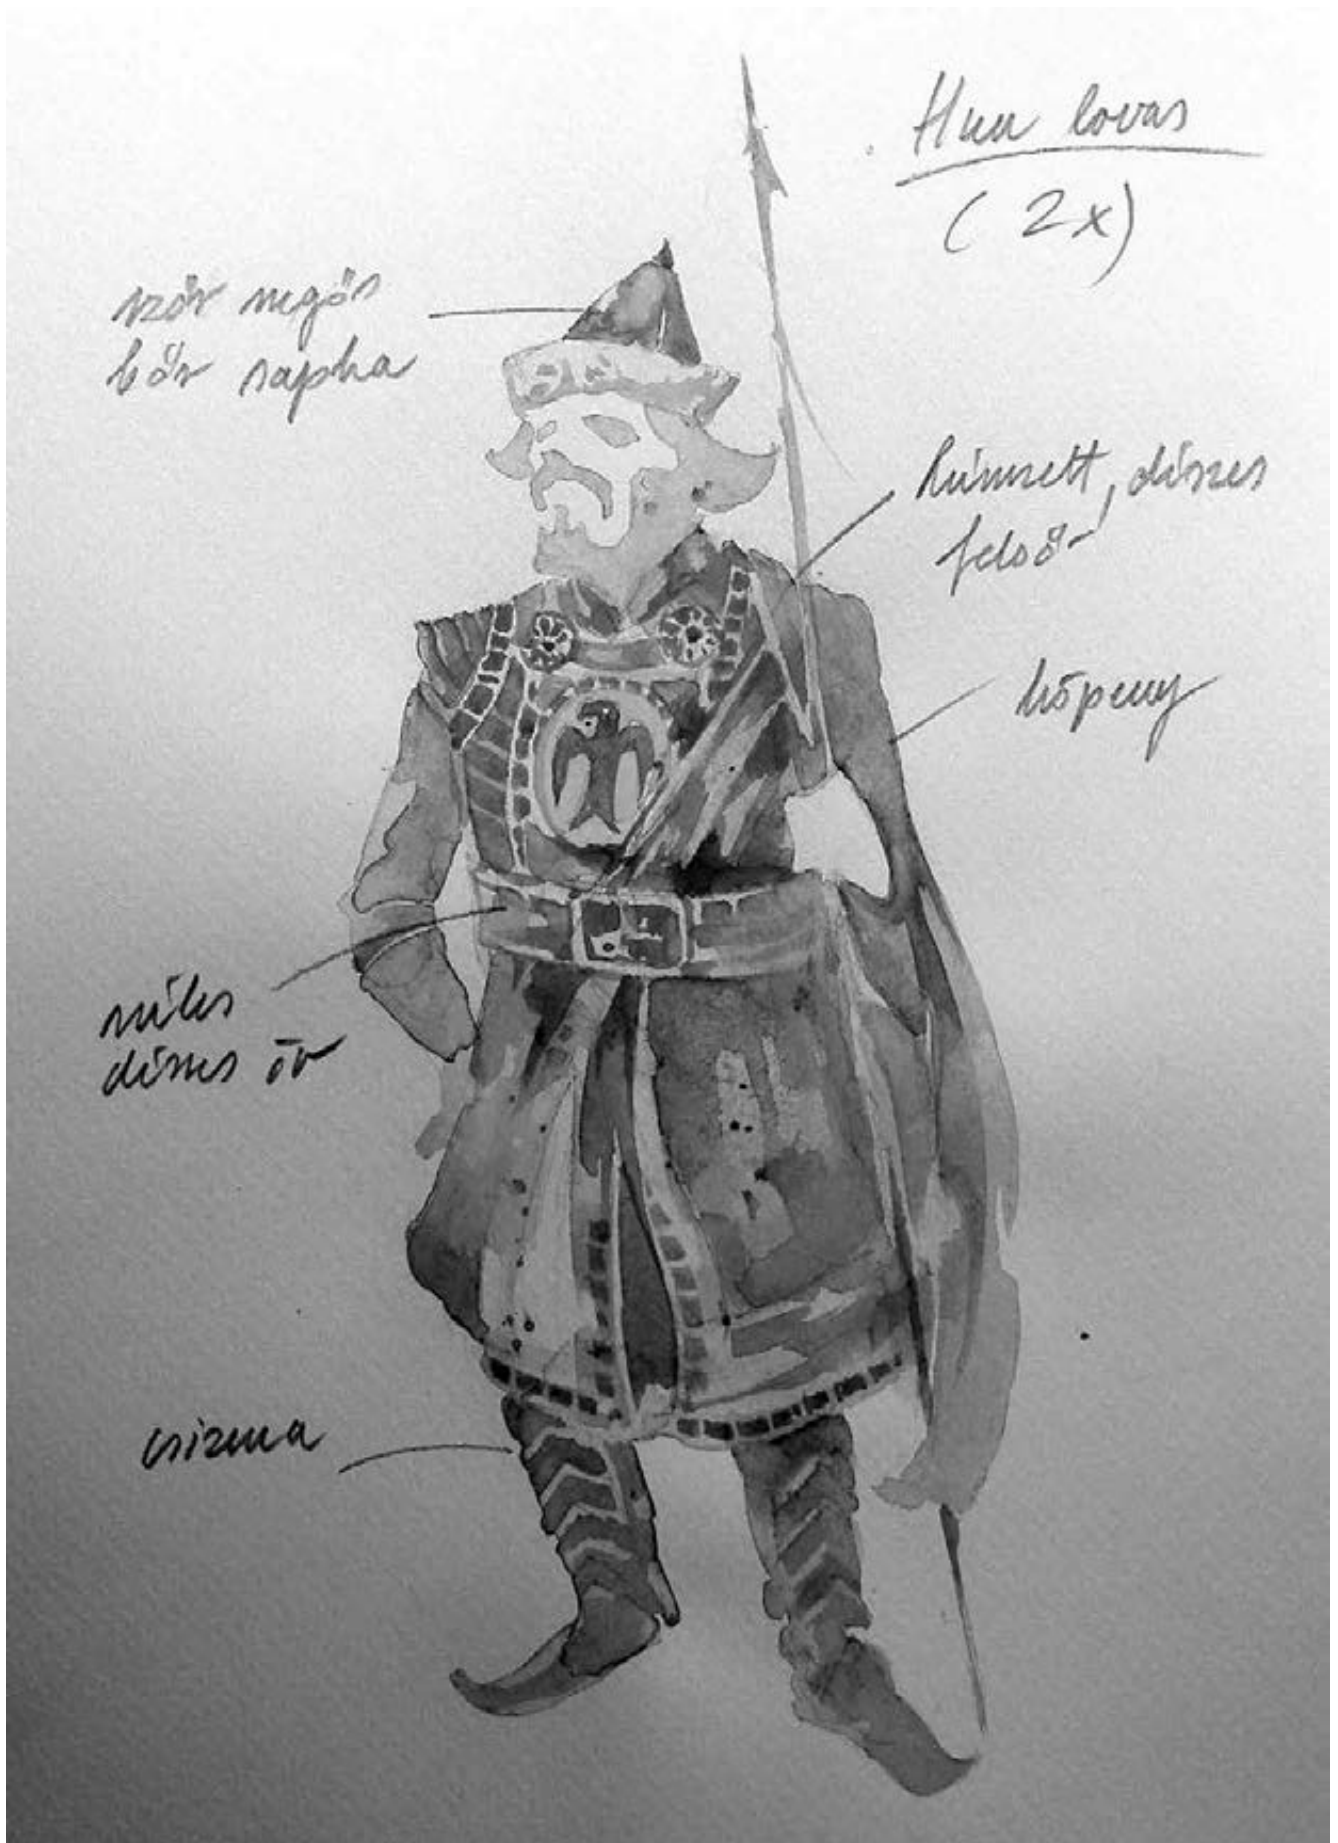 Hun lovas
(2x)
szőr szegős
bőr sapka
hímzett, díszes
felső
köpeny
széles
díszes öv
csizma